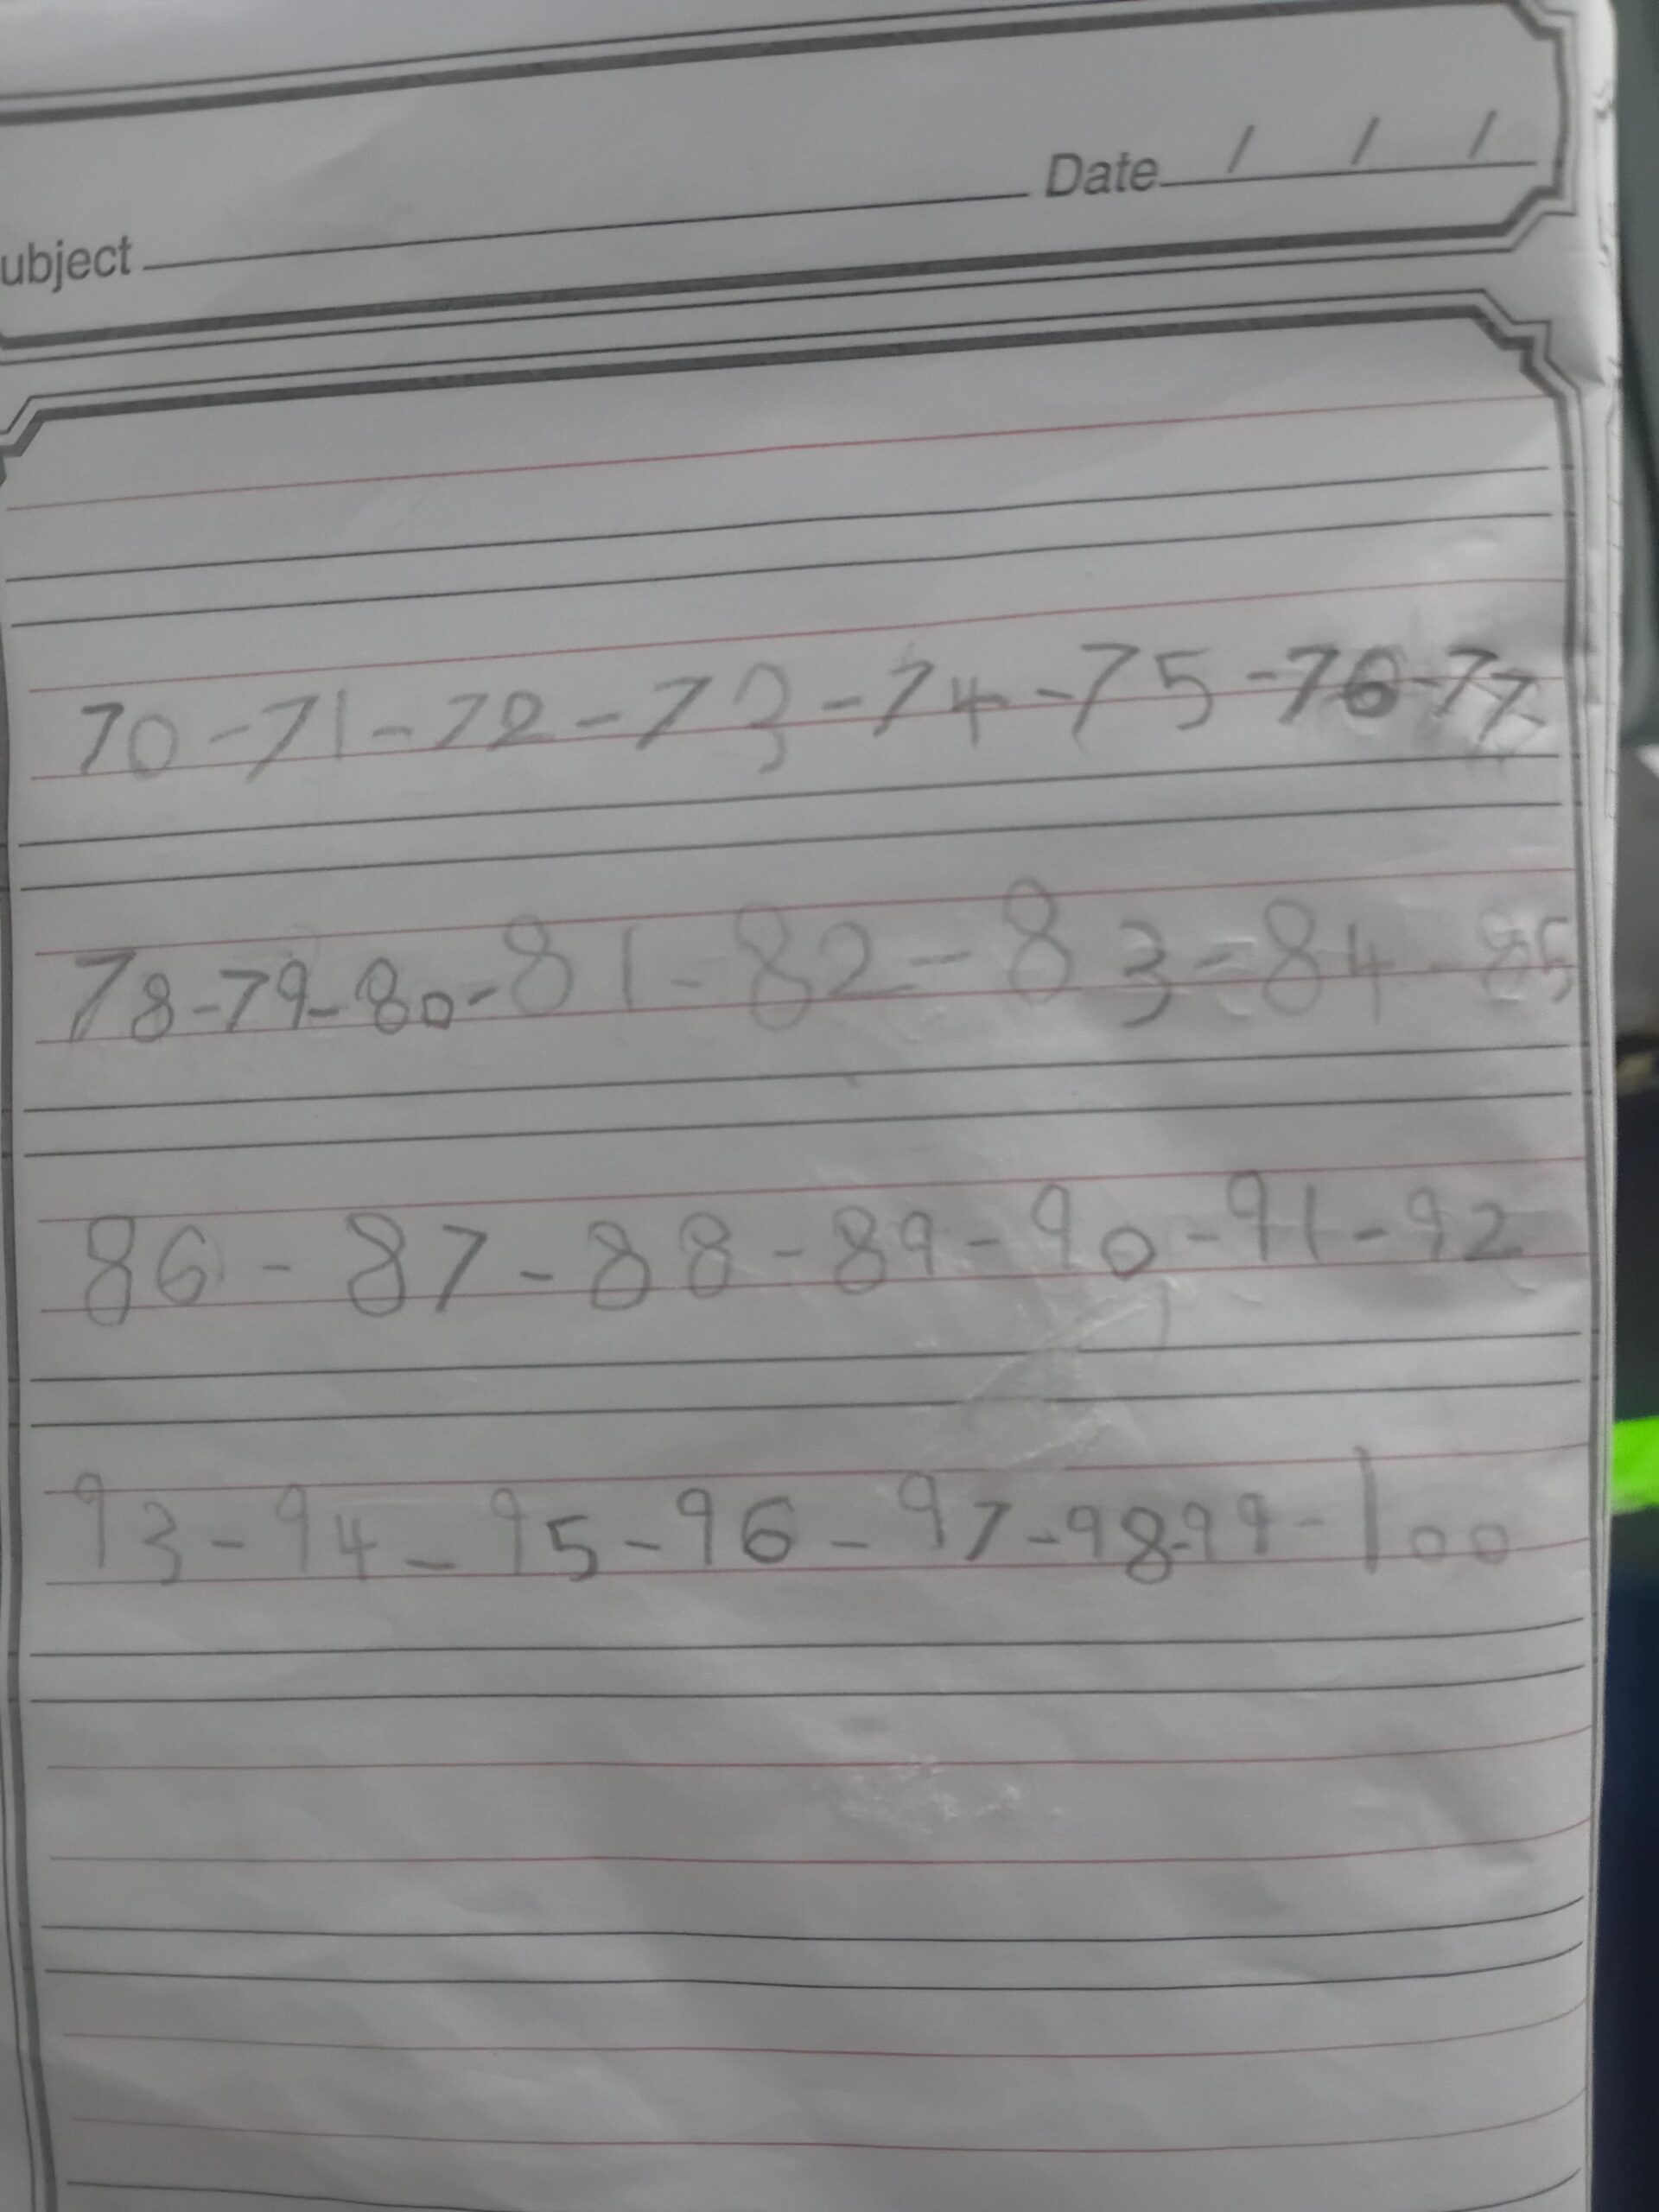 Date / / /
ubject
70 - 71 - 72 - 73 - 74 - 75 - 76 - 77
78 - 79 - 80 - 81 - 82 - 83 - 84 - 85
86 - 87 - 88 - 89 - 90 - 91 - 92
93 - 94 - 95 - 96 - 97 - 98 - 99 - 100